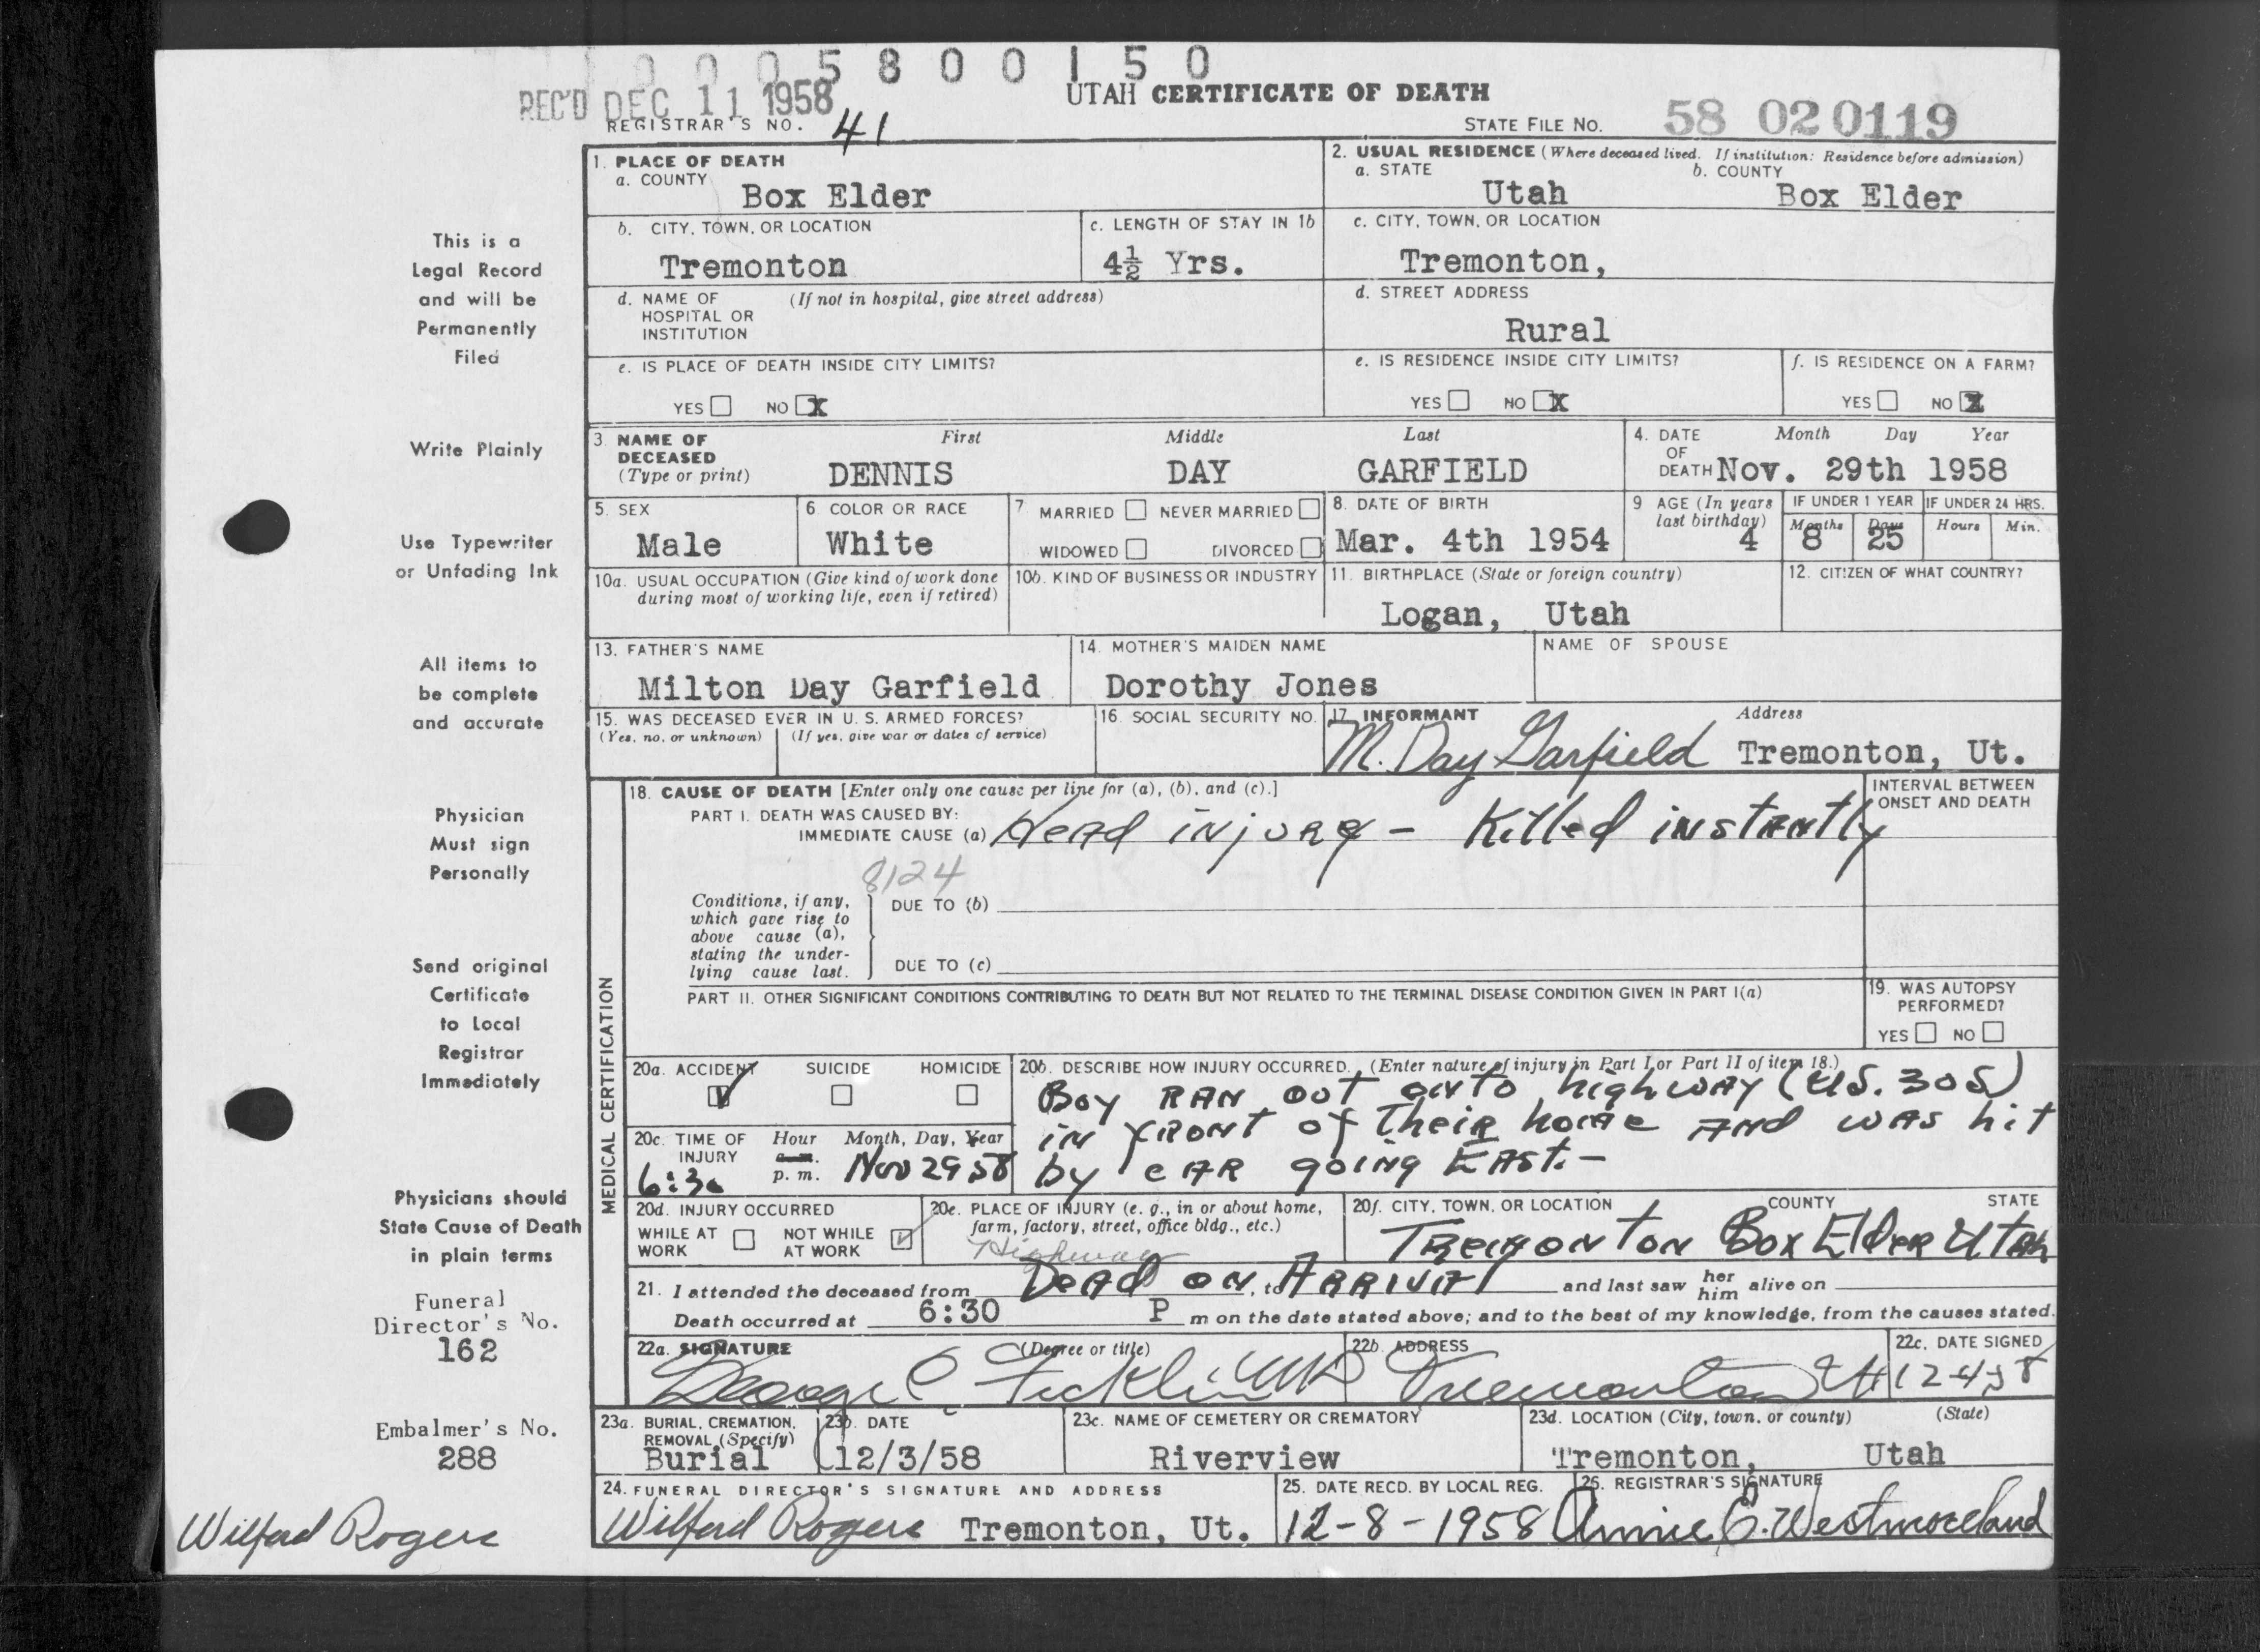 0005800150
REC'D DEC 11 1958
UTAH CERTIFICATE OF DEATH
REGISTRAR'S NO. 41
STATE FILE NO. 58 020119
This is a
Legal Record
and will be
Permanently
Filed
Write Plainly
Use Typewriter
or Unfading Ink
All items to
be complete
and accurate
Physician
Must sign
Personally
Send original
Certificate
to Local
Registrar
Immediately
Physicians should
State Cause of Death
in plain terms
Funeral
Director's No.
162
Embalmer's No.
288
Wilford Rogers
1. PLACE OF DEATH
a. COUNTY
Box Elder
2. USUAL RESIDENCE (Where deceased lived. If institution: Residence before admission)
a. STATE b. COUNTY
Utah Box Elder
b. CITY, TOWN, OR LOCATION
Tremonton
c. LENGTH OF STAY IN 1b
4½ Yrs.
c. CITY, TOWN, OR LOCATION
Tremonton,
d. NAME OF (If not in hospital, give street address)
HOSPITAL OR
INSTITUTION
d. STREET ADDRESS
Rural
e. IS PLACE OF DEATH INSIDE CITY LIMITS?
YES NO X
e. IS RESIDENCE INSIDE CITY LIMITS?
YES NO X
f. IS RESIDENCE ON A FARM?
YES NO X
3. NAME OF First Middle Last
DECEASED
(Type or print) DENNIS DAY GARFIELD
4. DATE Month Day Year
OF
DEATH Nov. 29th 1958
5. SEX
Male
6. COLOR OR RACE
White
7 MARRIED NEVER MARRIED
WIDOWED DIVORCED
8. DATE OF BIRTH
Mar. 4th 1954
9 AGE (In years
last birthday)
4
IF UNDER 1 YEAR
Months Days
8 25
IF UNDER 24 HRS.
Hours Min.
10a. USUAL OCCUPATION (Give kind of work done
during most of working life, even if retired)
10b. KIND OF BUSINESS OR INDUSTRY
11. BIRTHPLACE (State or foreign country)
Logan, Utah
12. CITIZEN OF WHAT COUNTRY?
13. FATHER'S NAME
Milton Day Garfield
14. MOTHER'S MAIDEN NAME
Dorothy Jones
NAME OF SPOUSE
15. WAS DECEASED EVER IN U. S. ARMED FORCES?
(Yes, no, or unknown) (If yes, give war or dates of service)
16. SOCIAL SECURITY NO.
17. INFORMANT Address
M. Day Garfield Tremonton, Ut.
MEDICAL CERTIFICATION
18. CAUSE OF DEATH [Enter only one cause per line for (a), (b), and (c).]
INTERVAL BETWEEN
ONSET AND DEATH
PART I. DEATH WAS CAUSED BY:
IMMEDIATE CAUSE (a) Head injury - Killed instantly
8124
Conditions, if any,
which gave rise to
above cause (a),
stating the under-
lying cause last.
DUE TO (b)
DUE TO (c)
PART II. OTHER SIGNIFICANT CONDITIONS CONTRIBUTING TO DEATH BUT NOT RELATED TO THE TERMINAL DISEASE CONDITION GIVEN IN PART I(a)
19. WAS AUTOPSY
PERFORMED?
YES NO
20a. ACCIDENT SUICIDE HOMICIDE
20b. DESCRIBE HOW INJURY OCCURRED. (Enter nature of injury in Part I or Part II of item 18.)
Boy ran out onto highway (US. 30S)
in front of their home and was hit
by car going East.-
20c. TIME OF Hour Month, Day, Year
INJURY a. m.
6:30 p. m. Nov 29 58
20d. INJURY OCCURRED
WHILE AT WORK NOT WHILE AT WORK
20e. PLACE OF INJURY (e. g., in or about home,
farm, factory, street, office bldg., etc.)
Highway
20f. CITY, TOWN, OR LOCATION COUNTY STATE
Tremonton Box Elder Utah
21. I attended the deceased from Dead on, to Arrival and last saw her him alive on
Death occurred at 6:30 P m on the date stated above; and to the best of my knowledge, from the causes stated.
22a. SIGNATURE (Degree or title)
George C Ficklin MD
22b. ADDRESS
Tremonton Ut
22c. DATE SIGNED
12-4-58
23a. BURIAL, CREMATION,
REMOVAL (Specify)
Burial
23b. DATE
12/3/58
23c. NAME OF CEMETERY OR CREMATORY
Riverview
23d. LOCATION (City, town, or county) (State)
Tremonton, Utah
24. FUNERAL DIRECTOR'S SIGNATURE AND ADDRESS
Wilford Rogers Tremonton, Ut.
25. DATE RECD. BY LOCAL REG.
12-8-1958
26. REGISTRAR'S SIGNATURE
Annie C. Westmoreland